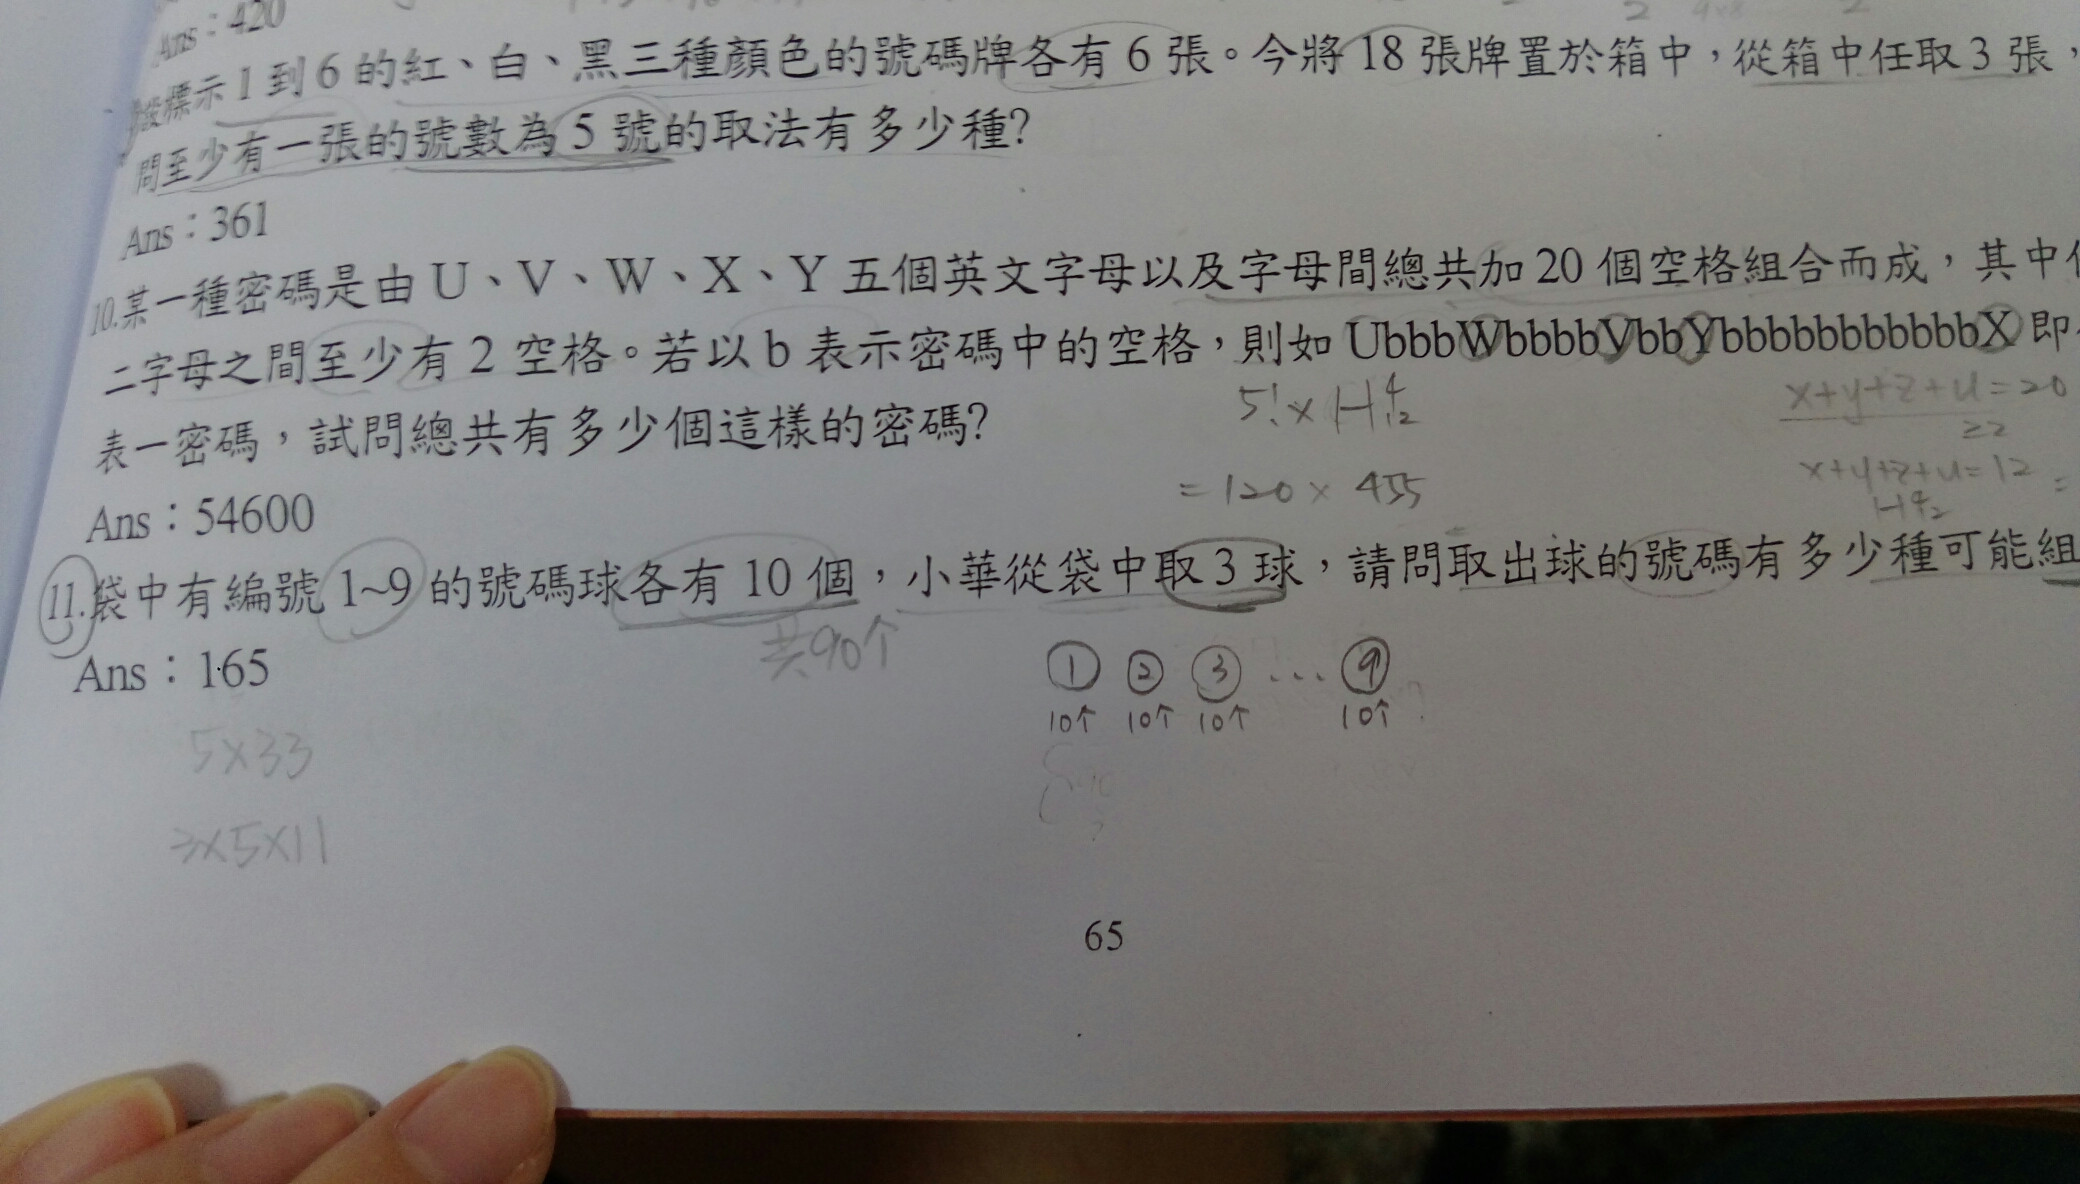 Ans：420
標示 1 到 6 的紅、白、黑三種顏色的號碼牌各有 6 張。今將 18 張牌置於箱中，從箱中任取 3 張，
問至少有一張的號數為 5 號的取法有多少種?
Ans：361
10.某一種密碼是由 U、V、W、X、Y 五個英文字母以及字母間總共加 20 個空格組合而成，其中
二字母之間至少有 2 空格。若以 b 表示密碼中的空格，則如 UbbbWbbbbVbbYbbbbbbbbbbbX 即
5!×H⁴₁₂
x+y+z+u=20
≥2
表一密碼，試問總共有多少個這樣的密碼?
=120×455
x+y+z+u=12 =
H⁴₁₂
Ans：54600
11.袋中有編號 1~9 的號碼球各有 10 個，小華從袋中取 3 球，請問取出球的號碼有多少種可能組
共90个
Ans：165
① ② ③ … ⑨
10个 10个 10个 10个
5×33
3×5×11
65